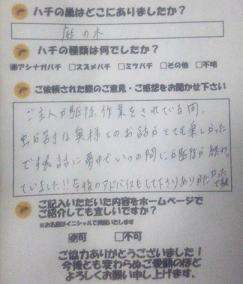 ハチの巣はどこにありましたか？
庭の木
ハチの種類は何でしたか？
アシナガバチ □スズメバチ □ミツバチ □その他 □不明
ご依頼された際のご意見・ご感想をお聞かせ下さい
ご主人が駆除作業をされている間、
虫好きな奥様とのお話がとても楽しかった
です。話に夢中でいつの間にか駆除が終わっ
ていました!!今後のアドバイスもして下さりありがとう
ご記入いただいた内容をホームページで
ご紹介しても宜しいですか？
※お名前はイニシャルで掲載いたします
可 □不可
ご協力ありがとうございました！
今後とも変わらぬご愛顧のほど
よろしくお願い申し上げます。